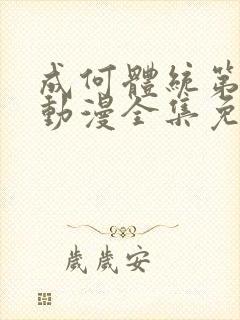 成何體統第
動漫全集免
歲歲安